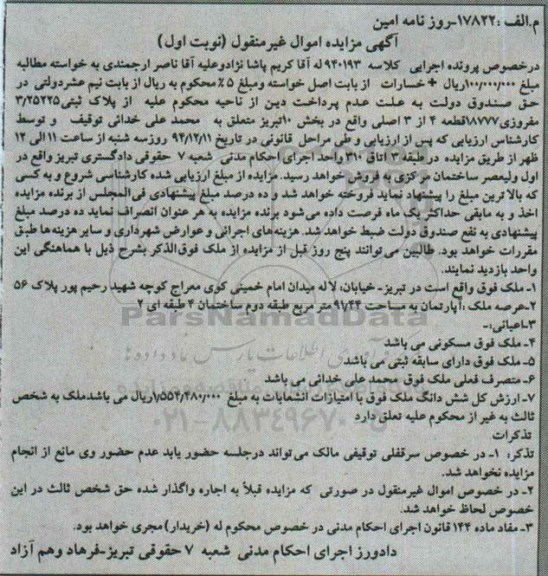 م.الف :۱۷۸۲۲-روز نامه امین
آگهی مزایده اموال غیرمنقول (نوبت اول)
درخصوص پرونده اجرایی کلاسه ۹۴۰۱۹۳ له آقا کریم پاشا نژادوعلیه آقا ناصر ارجمندی به خواسته مطالبه
مبلغ ۱۰۰/۰۰۰/۰۰۰ریال + خسارات از بابت اصل خواسته ومبلغ ۵٪ محکوم به ریال از بابت نیم عشردولتی در
حق صندوق دولت به علت عدم پرداخت دین از ناحیه محکوم علیه از پلاک ثبتی۳/۲۵۲۲۵
مفروزی۱۸۷۷۷قطعه ۴ از ۳ اصلی واقع در بخش ۱۰تبریز متعلق به محمد علی خدائی توقیف و توسط
کارشناس ارزیابی که پس از ارزیابی و طی مراحل قانونی در تاریخ ۹۴/۱۲/۱۱ روزسه شنبه از ساعت ۱۱ الی ۱۲
ظهر از طریق مزایده در طبقه ۳ اتاق ۳۱۰ واحد اجرای احکام مدنی شعبه ۷ حقوقی دادگستری تبریز واقع در
اول ولیعصر ساختمان مرکزی به فروش خواهد رسید. مزایده از مبلغ ارزیابی شده کارشناسی شروع و به کسی
که بالاترین مبلغ را پیشنهاد نماید فروخته خواهد شد و ده درصد مبلغ پیشنهادی فی‌المجلس از برنده مزایده
اخذ و به مابقی حداکثر یک ماه فرصت داده می‌شود برنده مزایده به هر عنوان انصراف نماید ده درصد مبلغ
پیشنهادی به نفع صندوق دولت ضبط خواهد شد. هزینه‌های اجرائی و عوارض شهرداری و سایر هزینه‌ها طبق
مقررات خواهد بود. طالبین می‌توانند پنج روز قبل از مزایده از ملک فوق‌الذکر بشرح ذیل با هماهنگی این
واحد بازدید نمایند.
۱- ملک فوق واقع است در تبریز- خیابان: لاله میدان امام خمینی کوی معراج کوچه شهید رحیم پور پلاک ۵۶
۲-عرصه ملک :آپارتمان به مساحت ۹۱/۴۴ متر مربع طبقه دوم ساختمان ۴ طبقه ای ۲
۳-اعیانی:-
۴- ملک فوق مسکونی می باشد
۵- ملک فوق دارای سابقه ثبتی می باشد
۶- متصرف فعلی ملک فوق محمد علی خدائی می باشد
۷- ارزش کل شش دانگ ملک فوق با امتیازات انشعابات به مبلغ ۱/۵۵۴/۴۸۰/۰۰۰ریال می باشدملک به شخص
ثالث به غیر از محکوم علیه تعلق دارد
تذکرات
تذکر: ۱- در خصوص سرقفلی توقیفی مالک می‌تواند درجلسه حضور یابد عدم حضور وی مانع از انجام
مزایده نخواهد شد.
۲- در خصوص اموال غیرمنقول در صورتی که مزایده قبلاً به اجاره واگذار شده حق شخص ثالث در این
خصوص لحاظ خواهد شد.
۳- مفاد ماده ۱۴۴ قانون اجرای احکام مدنی در خصوص محکوم له (خریدار) مجری خواهد بود.
دادورز اجرای احکام مدنی شعبه ۷ حقوقی تبریز-فرهاد وهم آزاد
ParsNamadData
۰۲۱-۸۸۳۴۹۶۷۰